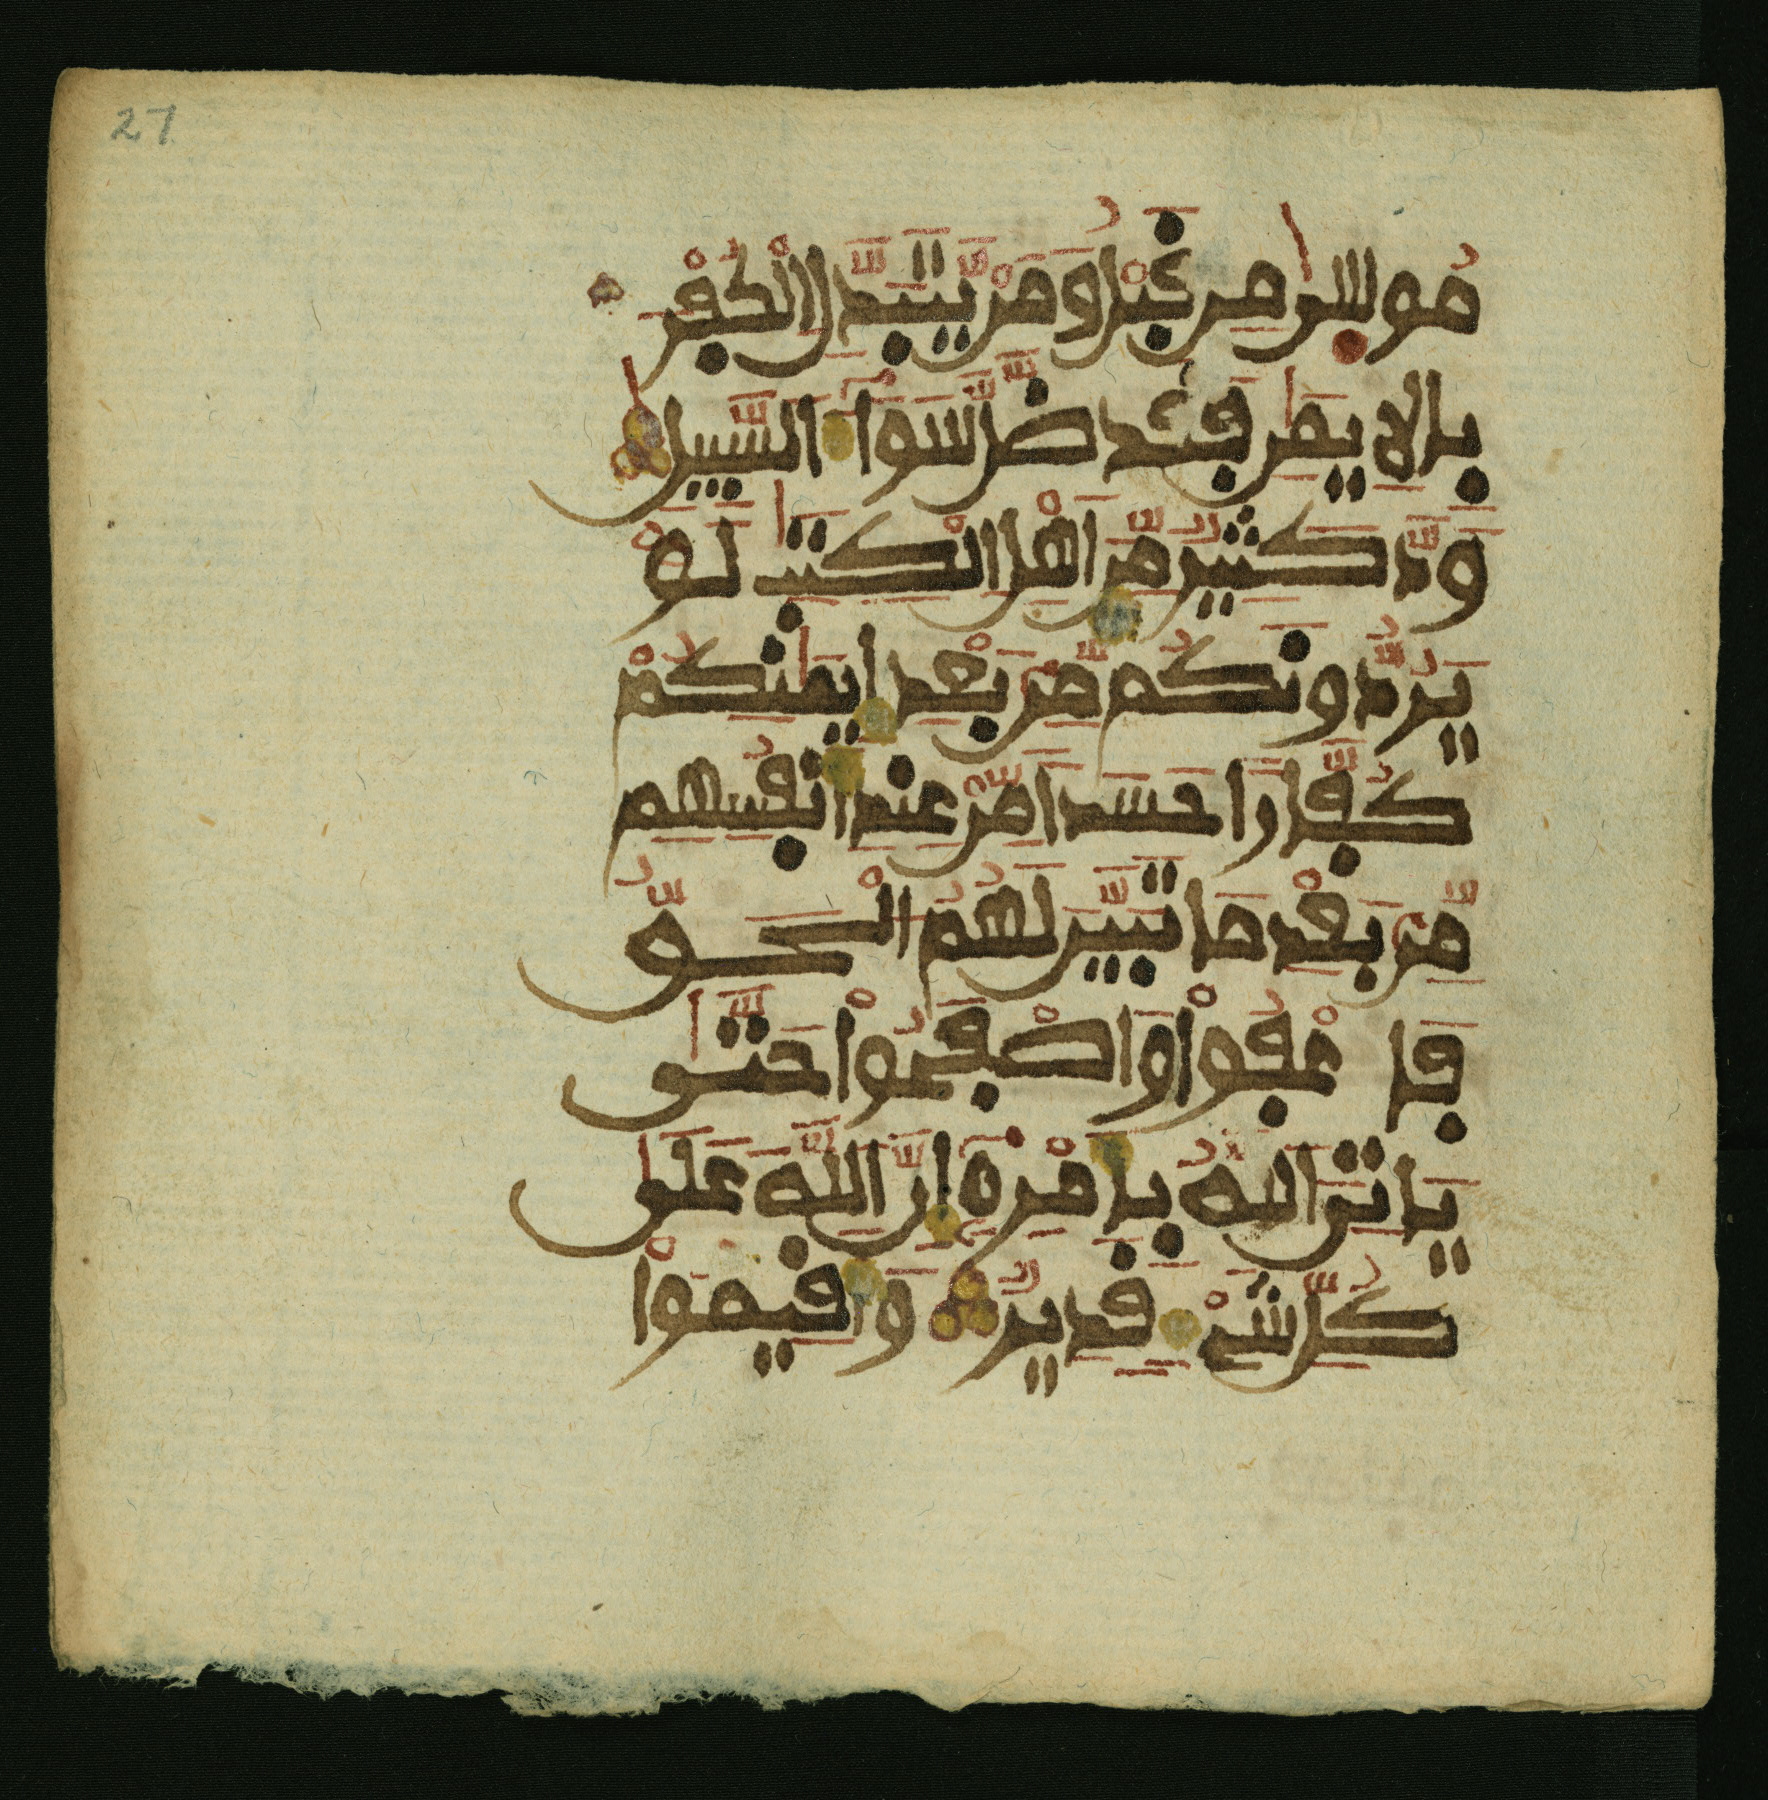 27
مُوسٜىٰ مِن قَبْلُ وَمَنْ يَّتَبَدَّلِ الْكُفْرَ
بِالِايمَٰنِ فَقَد ضَّلَّ سَوَآءَ السَّبِيلِ
وَدَّ كَثِيرٌ مِّنَ اَهْلِ الْكِتَٰبِ لَوْ
يَرُدُّونَكُم مِّنۢ بَعْدِ إِيمَٰنِكُمْ
كُفَّارًا حَسَدًا مِّنْ عِندِ أَنفُسِهِم
مِّنۢ بَعْدِ مَا تَبَيَّنَ لَهُمُ الْحَقُّ
فَاعْفُواْ وَاصْفَحُواْ حَتَّىٰ
يَاتِىَ اللَّهُ بِأَمْرِهِۦٓ إِنَّ اللَّهَ عَلَىٰ
كُلِّ شَىْءٍ قَدِيرٌ وَأَقِيمُواْ